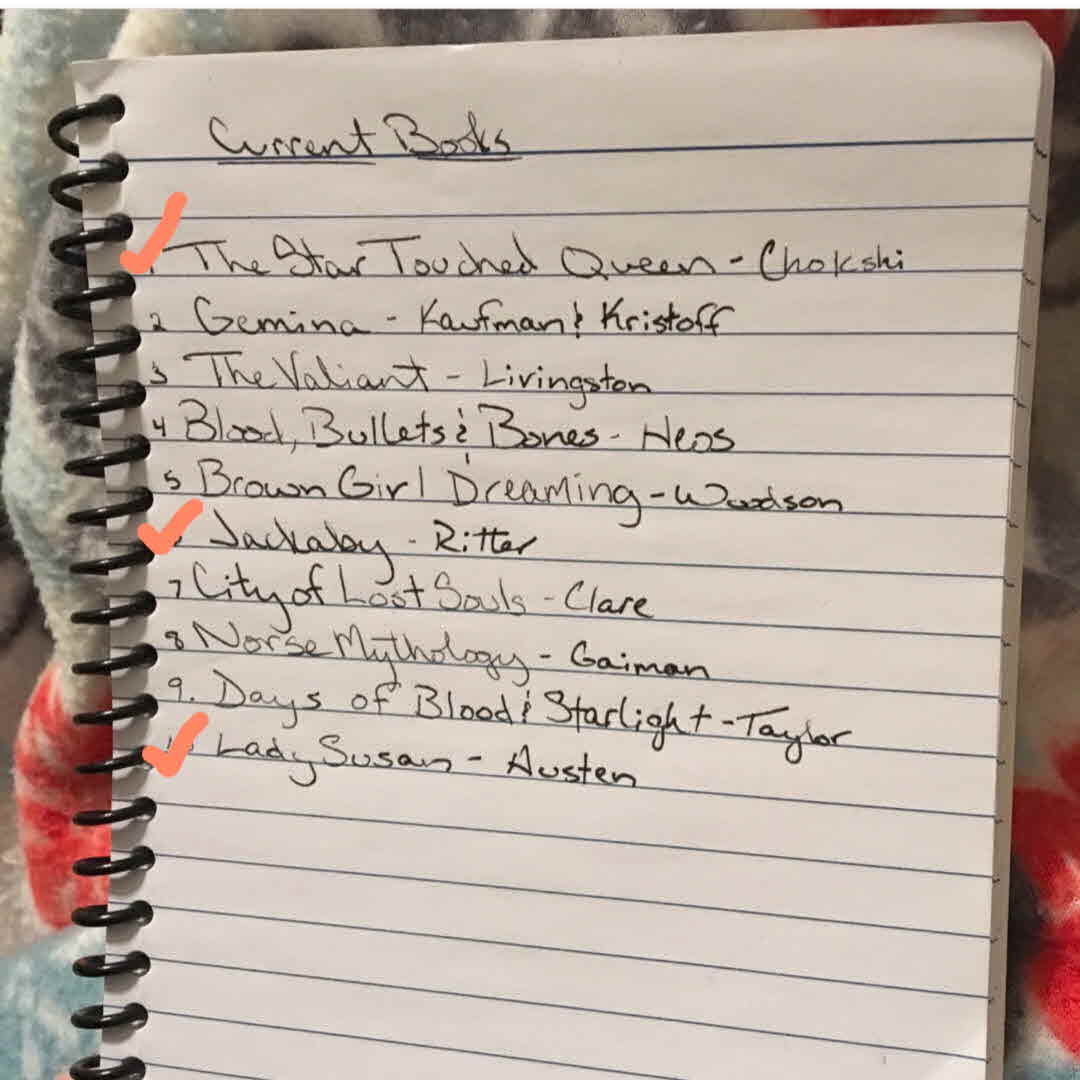 Current Books
The Star Touched Queen - Chokshi
2 Gemina - Kaufman & Kristoff
3 The Valiant - Livingston
4 Blood, Bullets & Bones - Heos
5 Brown Girl Dreaming - Woodson
Jackaby - Ritter
7 City of Lost Souls - Clare
8 Norse Mythology - Gaiman
9. Days of Blood & Starlight - Taylor
Lady Susan - Austen